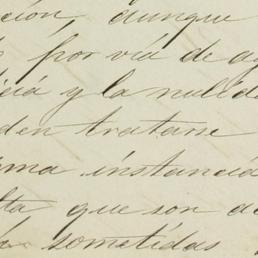 cion, aunque
por via de a
cia y la nulid
den tratarse
ma instancia
ta que son de
sometidas